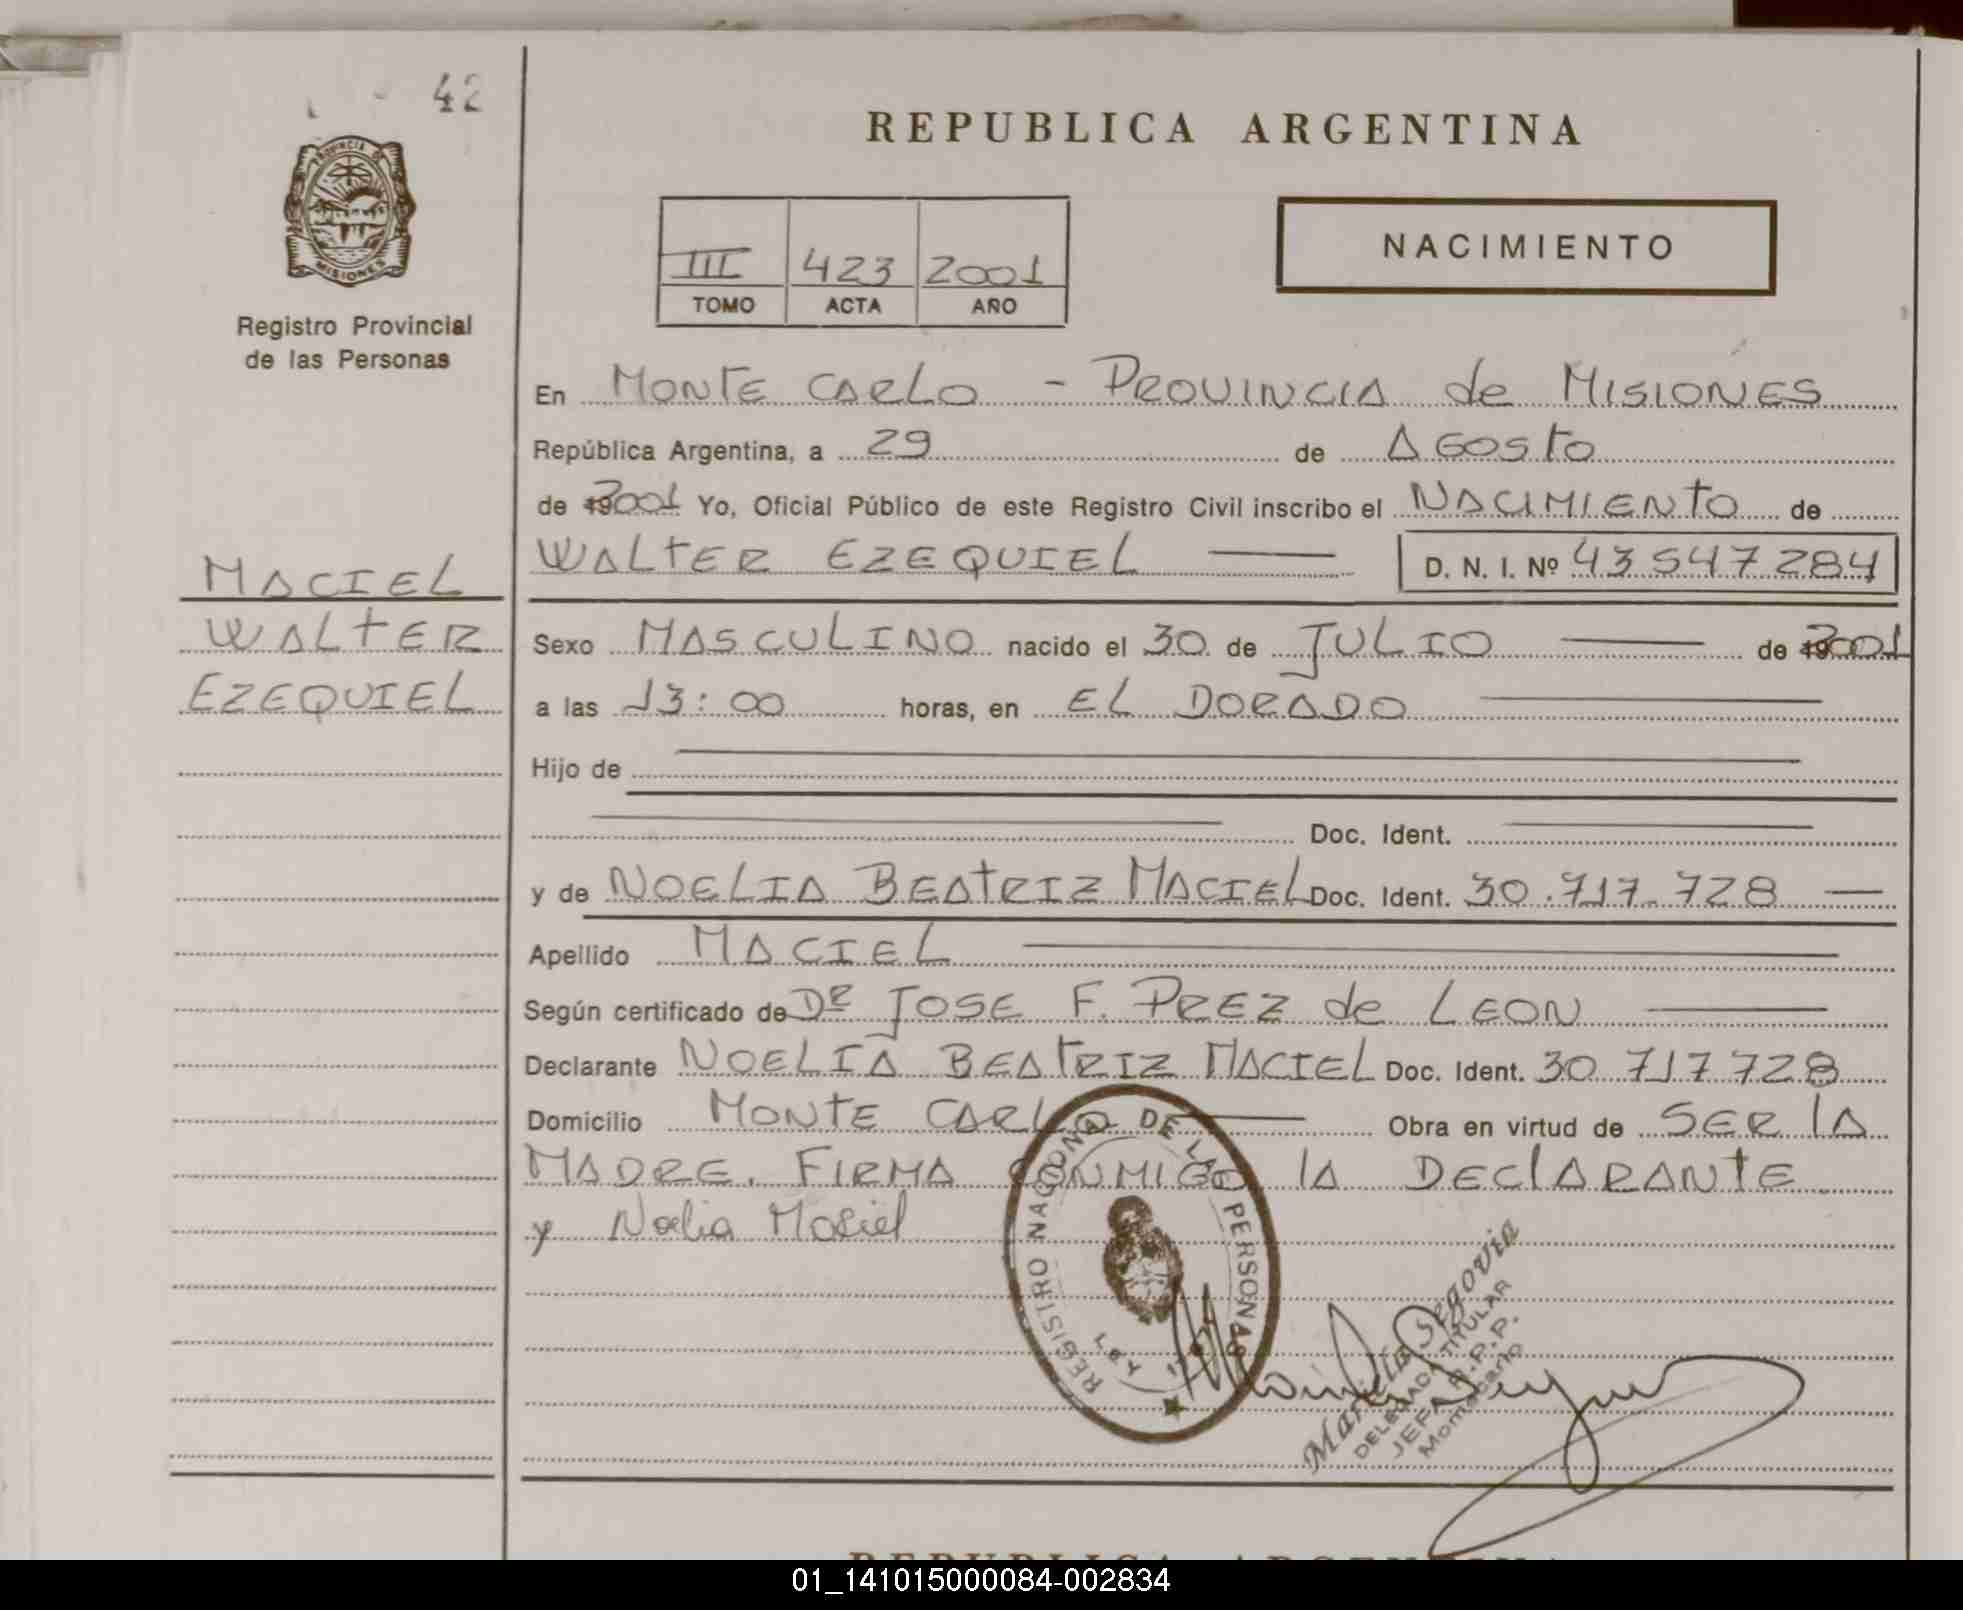 42
PROVINCIA DE
MISIONES
Registro Provincial
de las Personas
MACIEL
WALTER
EZEQUIEL
REPUBLICA ARGENTINA
III 423 2001
TOMO ACTA AÑO
NACIMIENTO
En MONTE CARLO - PROVINCIA de MISIONES
República Argentina, a 29 de AGOSTO
de 2001 Yo, Oficial Público de este Registro Civil inscribo el NACIMIENTO de
WALTER EZEQUIEL D. N. I. Nº 43547284
Sexo MASCULINO nacido el 30 de JULIO de 2001
a las 13:00 horas, en EL DORADO
Hijo de
Doc. Ident.
y de NOELIA BEATRIZ MACIEL Doc. Ident. 30.717.728
Apellido MACIEL
Según certificado de Dr JOSE F. PREZ de LEON
Declarante NOELIA BEATRIZ MACIEL Doc. Ident. 30 717 728
Domicilio MONTE CARLO Obra en virtud de SER LA
MADRE. FIRMA CONMIGO LA DECLARANTE
y Noelia Maciel
REGISTRO NACIONAL DE LAS PERSONAS
LEY
Segovia
DELEGADA TITULAR
JEFA R.P.P.
Montecarlo
REPUBLICA ARGENTINA
01_141015000084-002834